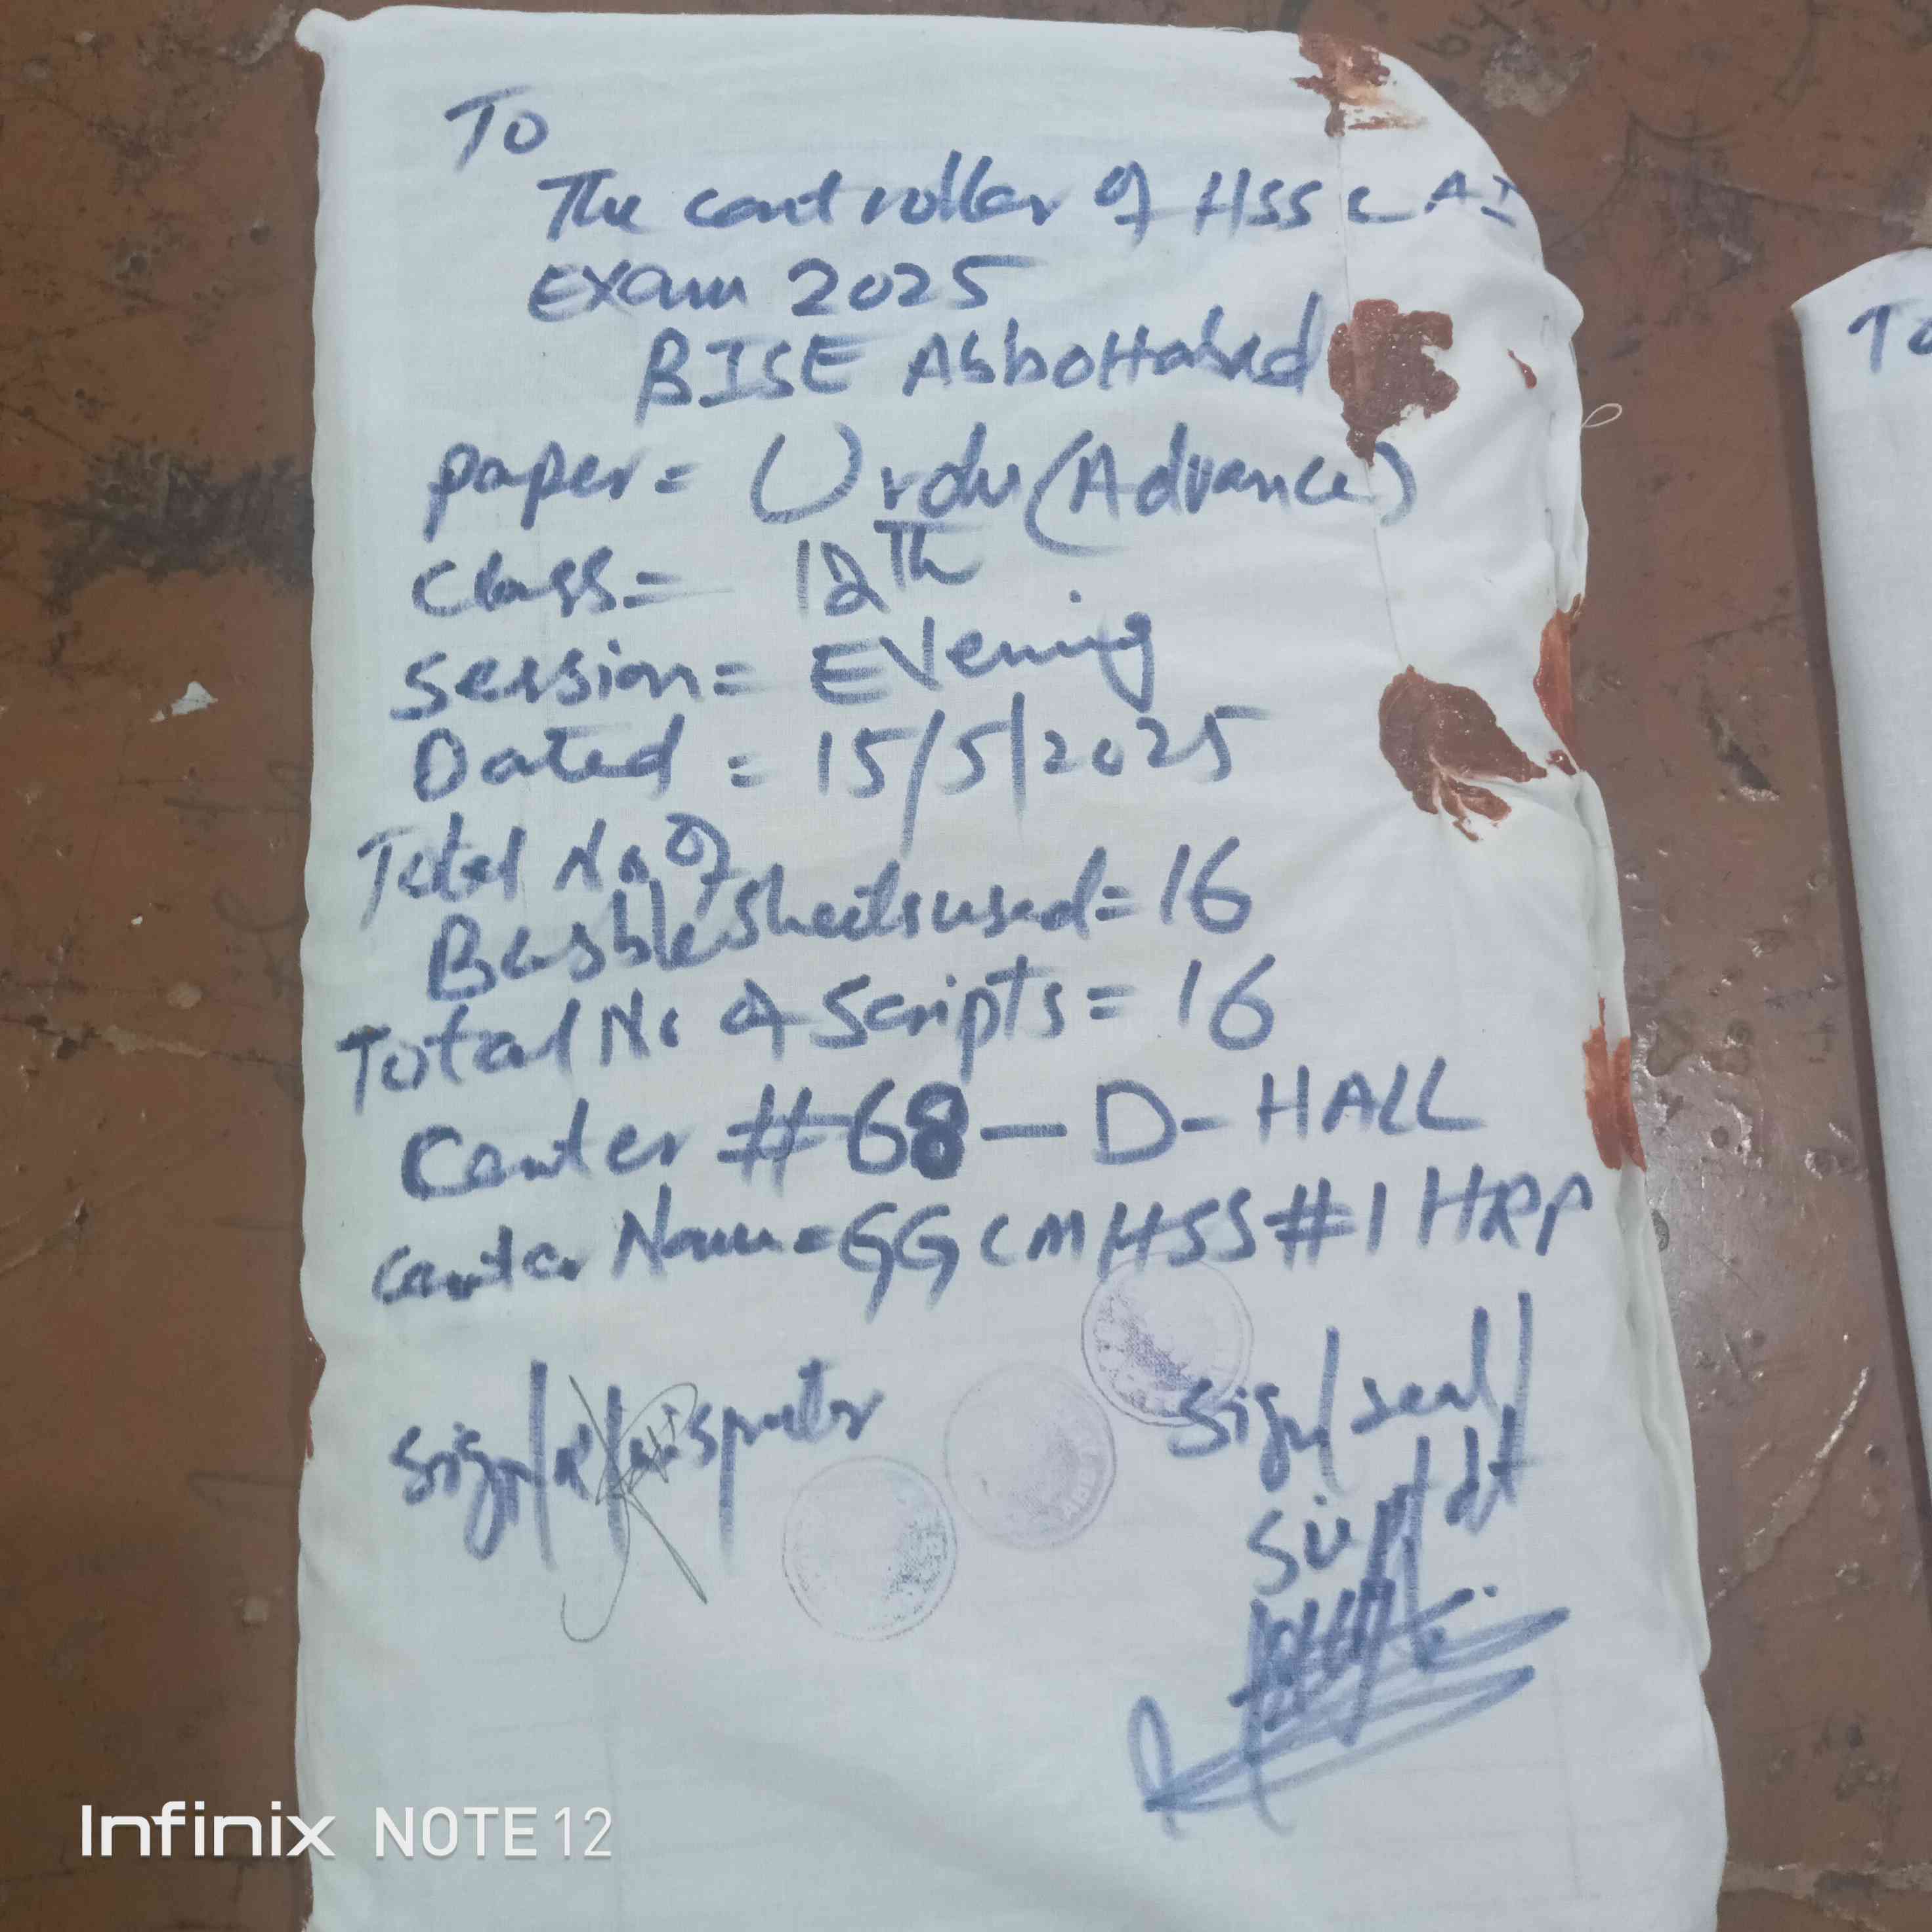 To
The controller of HSSC AI
Exam 2025
BISE Abbottabad
paper = Urdu (Advance)
class = 12Th
session = Evening
Dated = 15/5/2025
Total No of
Bubble Sheets used = 16
Total No of Scripts = 16
Center #68 - D - HALL
Center Name = GGCMHSS #1 HRP
Sign/ Inspector
Sign/seal/
Supdt
To
Infinix NOTE 12